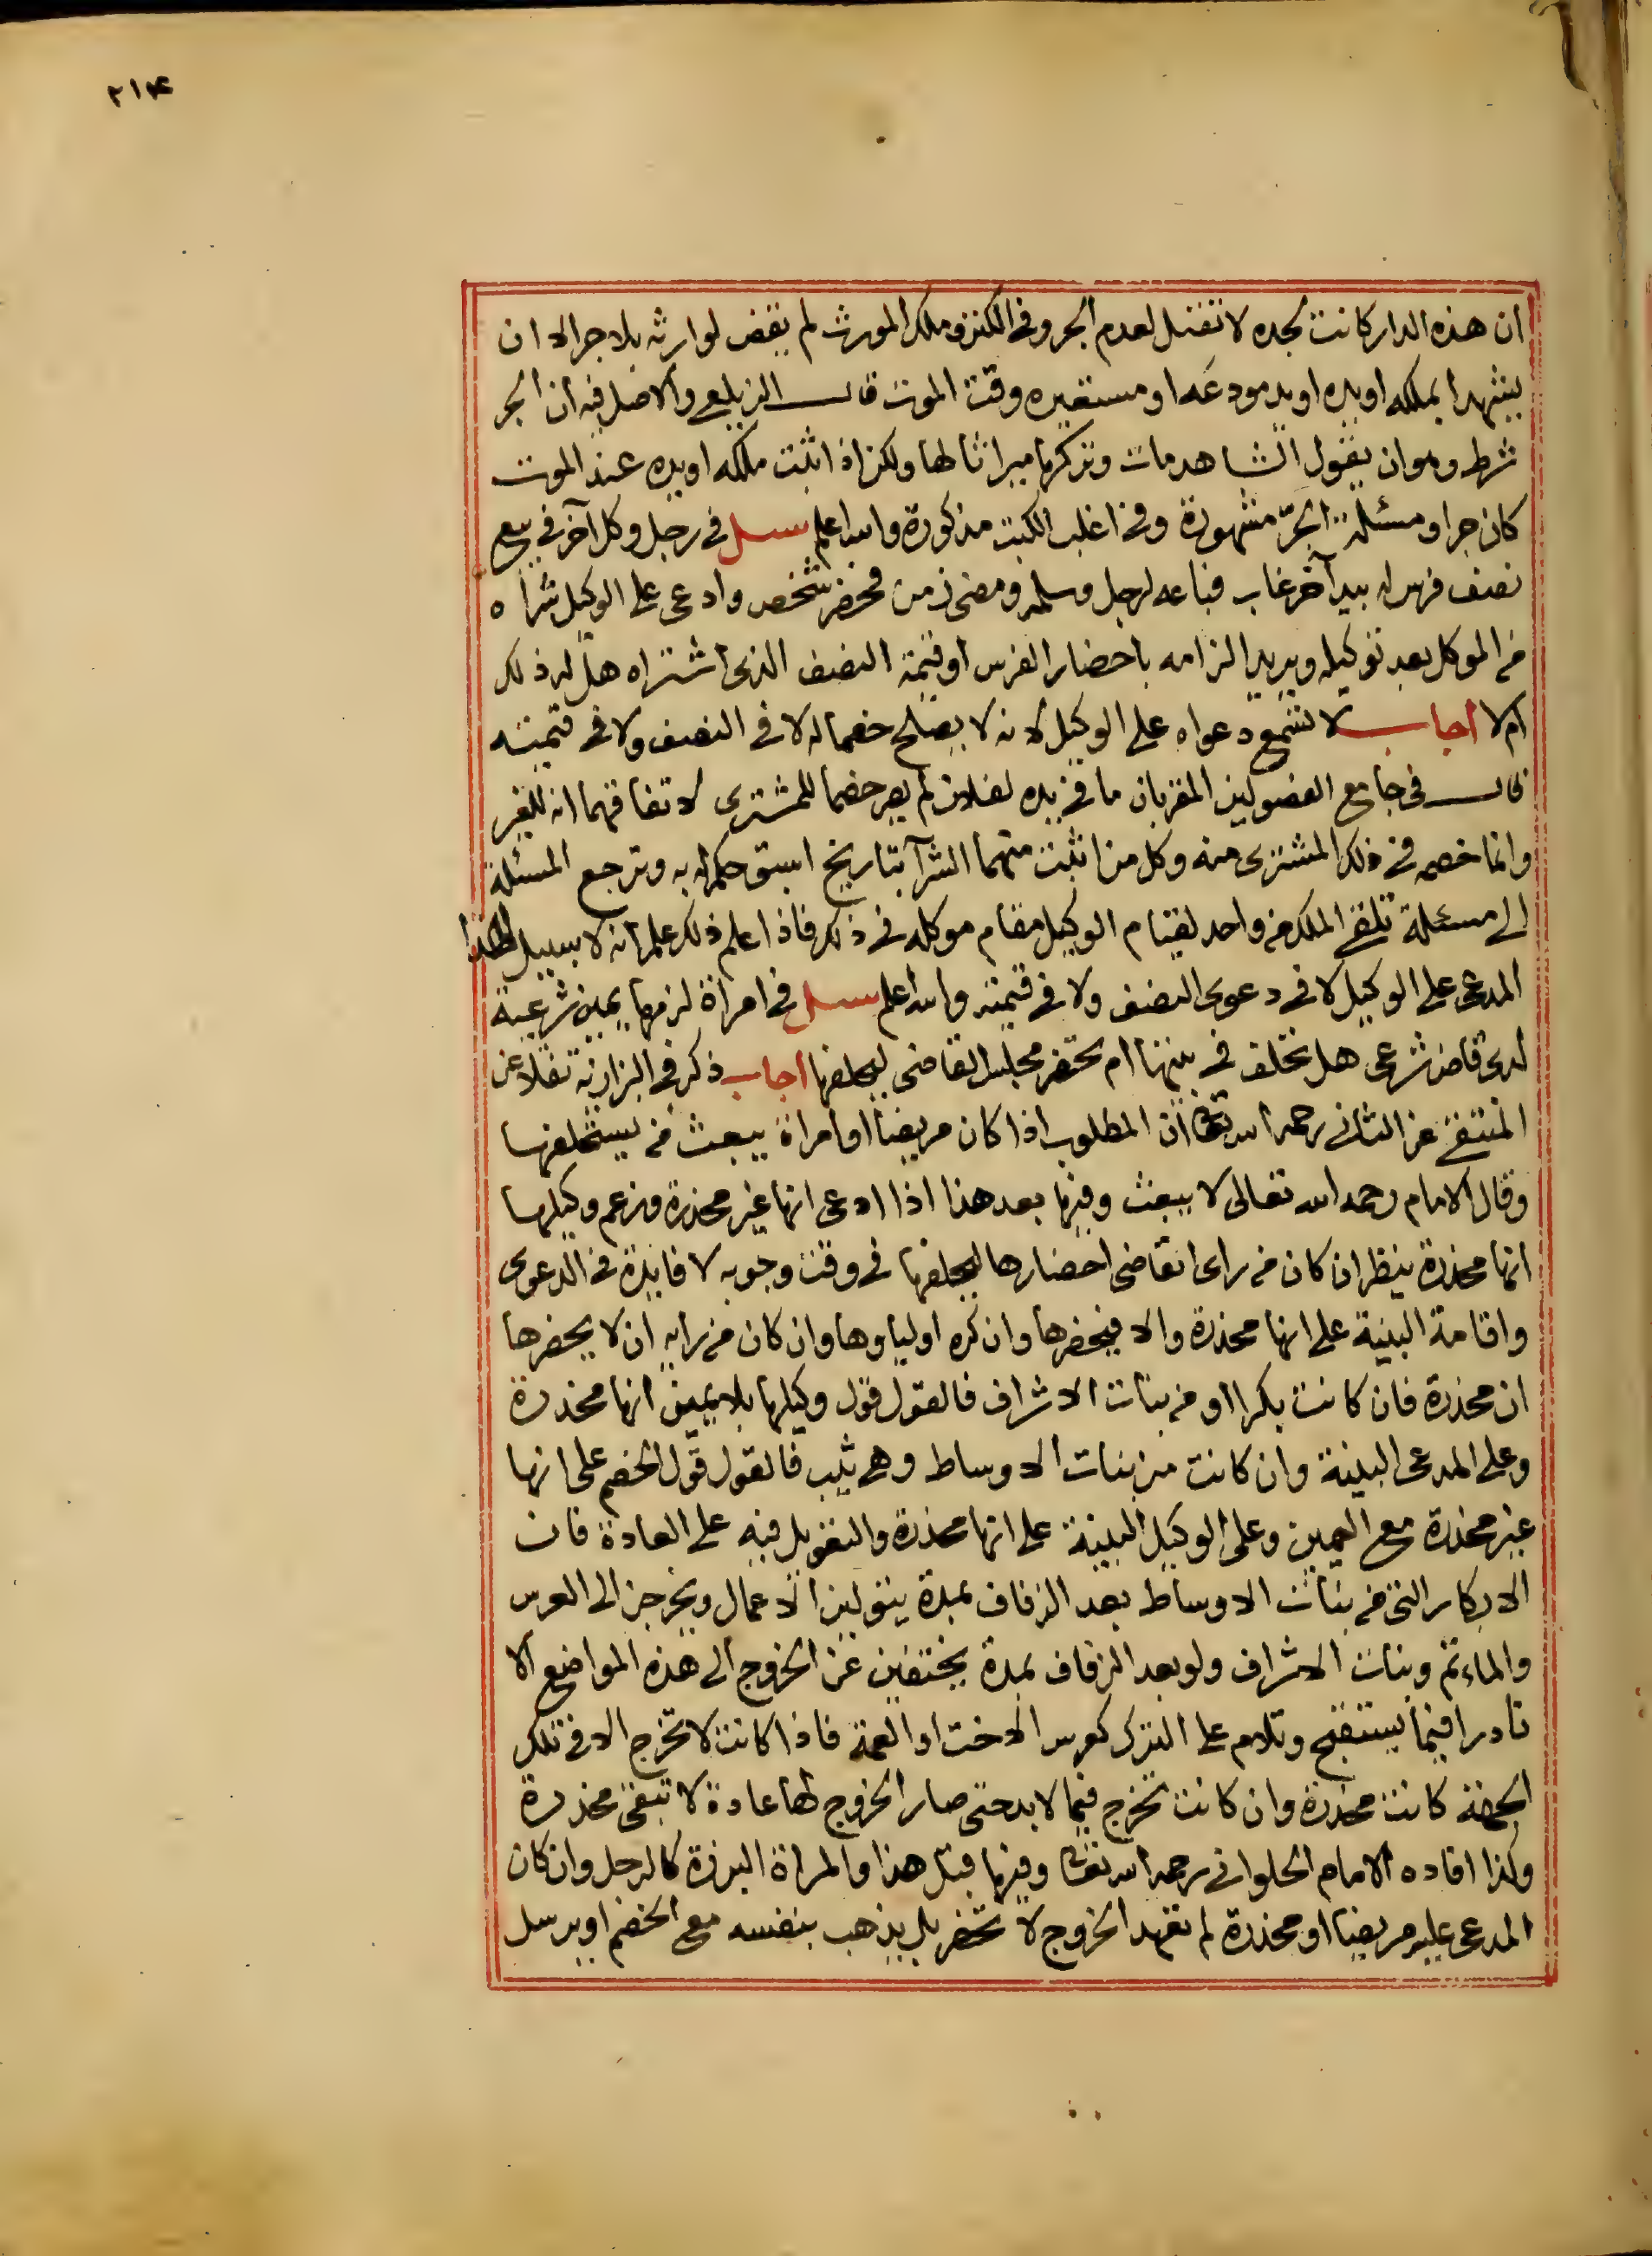 ٢١٤
ان هذه الدار كانت لجده لا تقبل لعدم الجر وفي الكنز وملك المورث لم يقض لوارثه بلا جر الا ان
يشهدا بملكه او يده او يد مودعه او مستعيره وقت الموت قال الزيلعي والاصل فيه ان الجر
شرط وهو ان يقول الشاهد مات وتركها ميراثا لها ولكن اذا اثبت ملكه او يده عند الموت
كان جرا ومسئلة الجر مشهورة وفي اغلب الكتب مذكورة والله اعلم سئل في رجل وكل آخر في بيع
نصف فرس له بيد آخر غاب فباعه لرجل وسلمه ومضى زمن فحضر شخص وادعى على الوكيل شراه
من الموكل بعد توكيله ويريد الزامه باحضار الفرس او قيمة النصف الذي اشتراه هل له ذلك
ام لا اجاب لا تسمع دعواه على الوكيل لانه لا يصلح خصما له لا في النصف ولا في قيمته
قال في جامع الفصولين المقر بان ما في يده لفلان لم يصر خصما للمشتري لاتفاقهما انه للغير
وانما خصمه في ذلك المشتري منه وكل من اثبت منهما الشرآ بتاريخ اسبق حكم له به وترجع المسئلة
الى مسئلة تلقي الملك من واحد لقيام الوكيل مقام موكله في ذلك فاذا علم ذلك علم انه لا سبيل لهذا
المدعي على الوكيل لا في دعوى النصف ولا في قيمته والله اعلم سئل في امراة لزمها يمين شرعية
لدى قاض شرعي هل تحلف في بيتها ام تحضر مجلس القاضي ليحلفها اجاب ذكر في البزازية نقلا عن
المنتقى عن الثاني رحمه الله تعالى ان المطلوب اذا كان مريضا او امراة يبعث من يستحلفها
وقال الامام رحمه الله تعالى لا يبعث وفيها بعد هذا اذا ادعى انها غير مخدرة وزعم وكيلها
انها مخدرة ينظر ان كان من راى القاضي احضارها ليحلفها في وقت وجوبه لا فايدة في الدعوى
واقامة البينة على انها مخدرة والا فيحضرها وان كره اولياوها وان كان من رايه ان لا يحضرها
ان مخدرة فان كانت بكرا او من بنات الاشراف فالقول قول وكيلها بلا يمين انها مخدرة
وعلى المدعي البينة وان كانت من بنات الاوساط وهي ثيب فالقول قول الخصم على انها
غير مخدرة مع اليمين وعلى الوكيل البينة على انها مخدرة والتعويل فيه على العادة فان
الابكار التي من بنات الاوساط بعد الزفاف بمدة يتولين الاعمال ويخرجن الى العرس
والماءتم وبنات الاشراف ولو بعد الزفاف بمدة يختفين عن الخروج الى هذه المواضع الا
نادرا فيما يستقبح وتلام على الترك كعرس الاخت او العمة فاذا كانت لا تخرج الا في تلك
الجهة كانت مخدرة وان كانت تخرج فيما لا بد حتى صار الخروج لها عادة لا تبقى مخدرة
وكذا افاده الامام الحلواني رحمه الله تعالى وفيها قبل هذا والمراة البرزة كالرجل وان كان
المدعى عليه مريضا او مخدرة لم تعهد الخروج لا تحضر بل يذهب بنفسه مع الخصم او يرسل